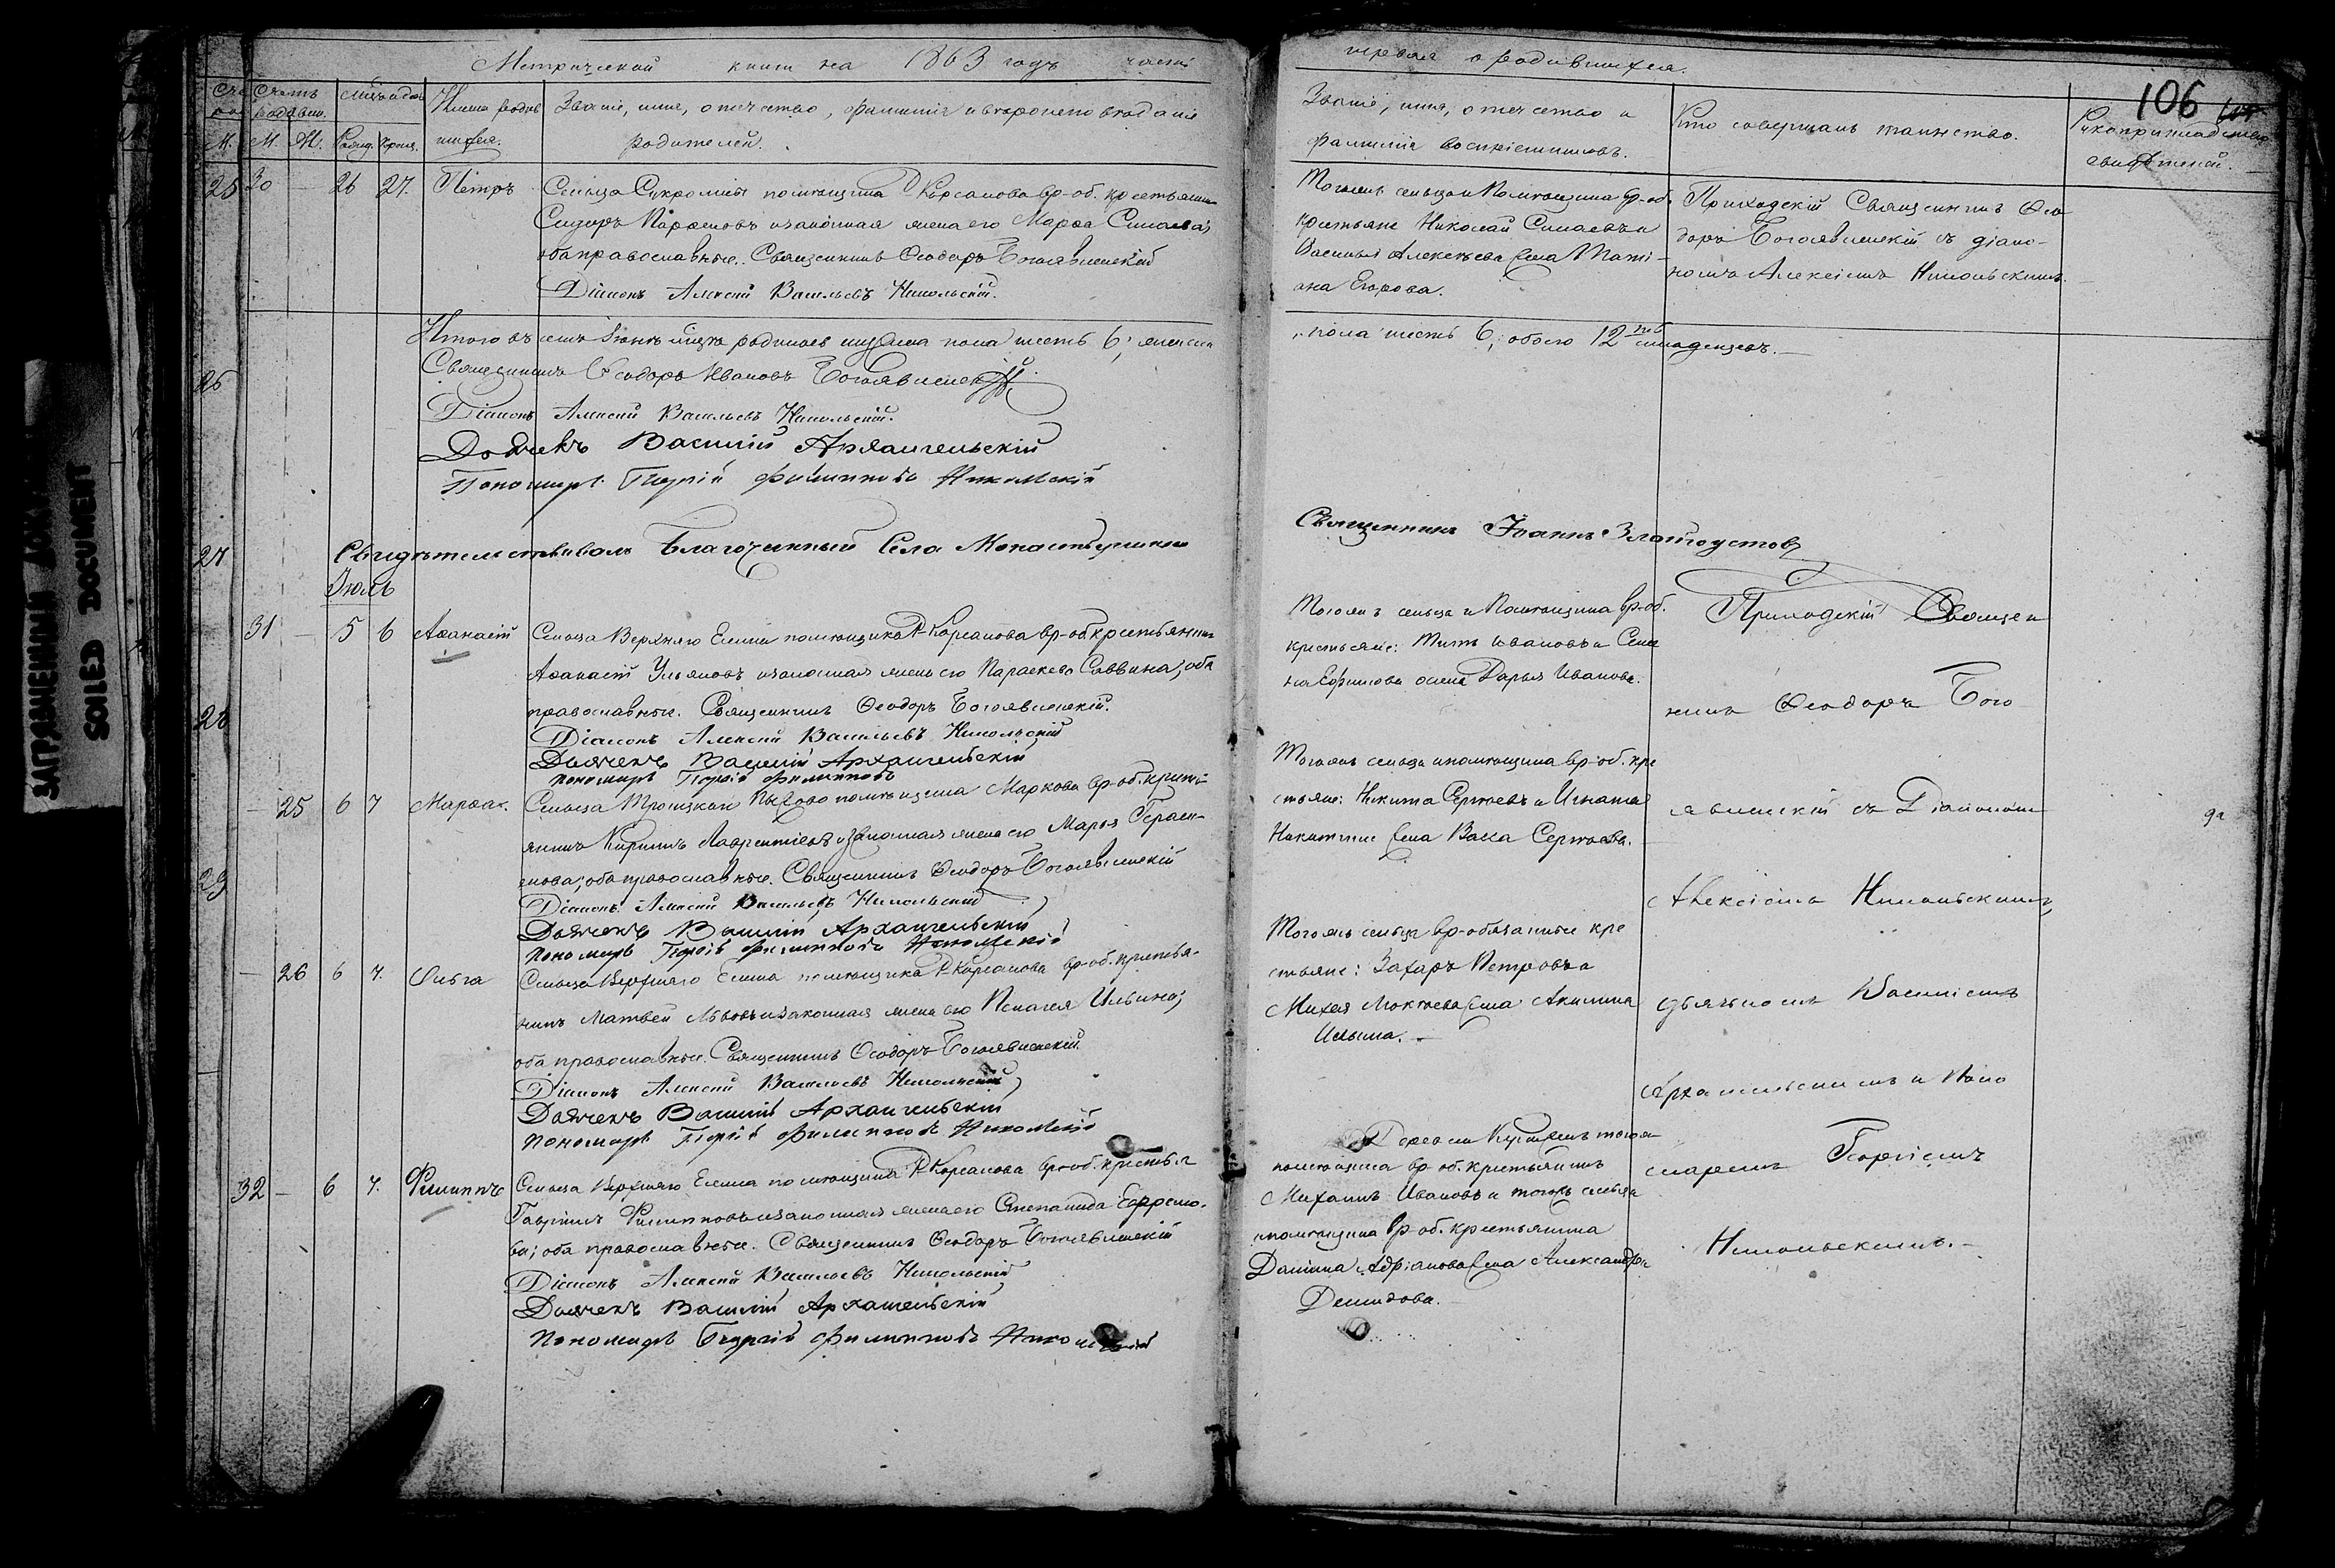 Метрической книги на 1863 годъ части
Счетъ родивш. Мѣсяцъ и день Имена родив- Званіе, имя, отечество, фамилія и вѣроисповѣданіе
М. М. Ж. Рожд. Крещ. шихся. родителей.
25 30 26 27. Петръ Сельца Сукромны помѣщика Р. Корсакова вр-об. крестьянинъ
Сидоръ Парѳеновъ и законная жена его Марѳа
оба православные. Священникъ Ѳеодоръ Богоявленскій
Діаконъ Алексій Васильевъ Никольскій.
Итого въ семъ Іюнѣ мѣсяцѣ родилось мужеска пола шесть 6; женска
26 Священникъ Ѳеодоръ Ивановъ Богоявленскій
Діаконъ Алексій Васильевъ Никольскій.
Дьячекъ Василій Архангельскій
Пономарь Георгій Филипповъ Никольскій
27 Свидѣтельствовалъ Благочинный Села
Іюль
31 – 5 6 Аѳанасій Сельца Верхняго Елина помѣщика Р. Корсакова вр-об. крестьянинъ
Аѳанасій Ульяновъ и законная жена его Параскева Саввина; оба
28 православные. Священникъ Ѳеодоръ Богоявленскій.
Діаконъ Алексій Васильевъ Никольскій
Дьячекъ Василій Архангельскій
Пономарь Георгій Филипповъ
– 25 6 7 Марѳа. Сельца Троицкаго помѣщика Маркова вр-об. кресть-
янинъ Кириллъ Лаврентіевъ и законная жена его Марья Герас-
имова; оба православные. Священникъ Ѳеодоръ Богоявленскій
29 Діаконъ Алексій Васильевъ Никольскій
Дьячекъ Василій Архангельскій
Пономарь Георгій Филипповъ Никольскій
– 26 6 7. Ольга Сельца Верхняго Елина помѣщика Р. Корсакова вр-об. крестья-
нинъ Матвей Львовъ и законная жена его Пелагея Ильина;
оба православные. Священникъ Ѳеодоръ Богоявленскій.
Діаконъ Алексій Васильевъ Никольскій
Дьячекъ Василій Архангельскій
Пономарь Георгій Филипповъ Никольскій
32 – 6 7. Филиппъ Сельца Верхняго Елина помѣщика Р. Корсакова вр-об. крестья
Гавріилъ Филипповъ и законная жена его Степанида Ефремо-
ва; оба православные. Священникъ Ѳеодоръ Богоявленскій
Діаконъ Алексій Васильевъ Никольскій
Дьячекъ Василій Архангельскій
Пономарь Георгій Филипповъ Никольскій
первая о родившихся.
106
Званіе, имя, отечество и Кто совершалъ таинство. Рукоприкладство
фамилія воспріемниковъ. свидѣтелей.
Тогожъ сельца и Помѣщика вр-об. Приходскій Священникъ Ѳео
крестьяне Николай и доръ Богоявленскій съ діако-
Василья Алексѣева жена Тати- номъ Алексіемъ Никольскимъ.
ана Егорова.
пола шесть 6; обоего 12ть младенцевъ.
Священникъ Іоаннъ Златоустовъ
Тогожъ сельца и Помѣщика вр-об. Приходскій Священ
крестьяне: Титъ Ивановъ и
Ефимова жена Дарья Иванова. никъ Ѳеодоръ Бого
Тогожъ сельца и помѣщика вр-об. кре
стьяне: Никита Сергѣевъ и Игнатія явленскій съ Діакономъ
Никитина жена Васса Сергѣева.
Алексіемъ Никольскимъ,
Тогожъ сельца вр-обязанные кре
стьяне: Захаръ Петровъ и
Михея жена Акилина дьячкомъ Василіемъ
Ильина.
Архангельскимъ и Поно
Деревни тогожъ
помѣщика вр-об. крестьянинъ маремъ Георгіемъ
Михаилъ Ивановъ и тогожъ сельца
и помѣщика вр-об. крестьянина Никольскимъ.
Даніила Адріанова жена Александра
Демидова.
SOILED DOCUMENT